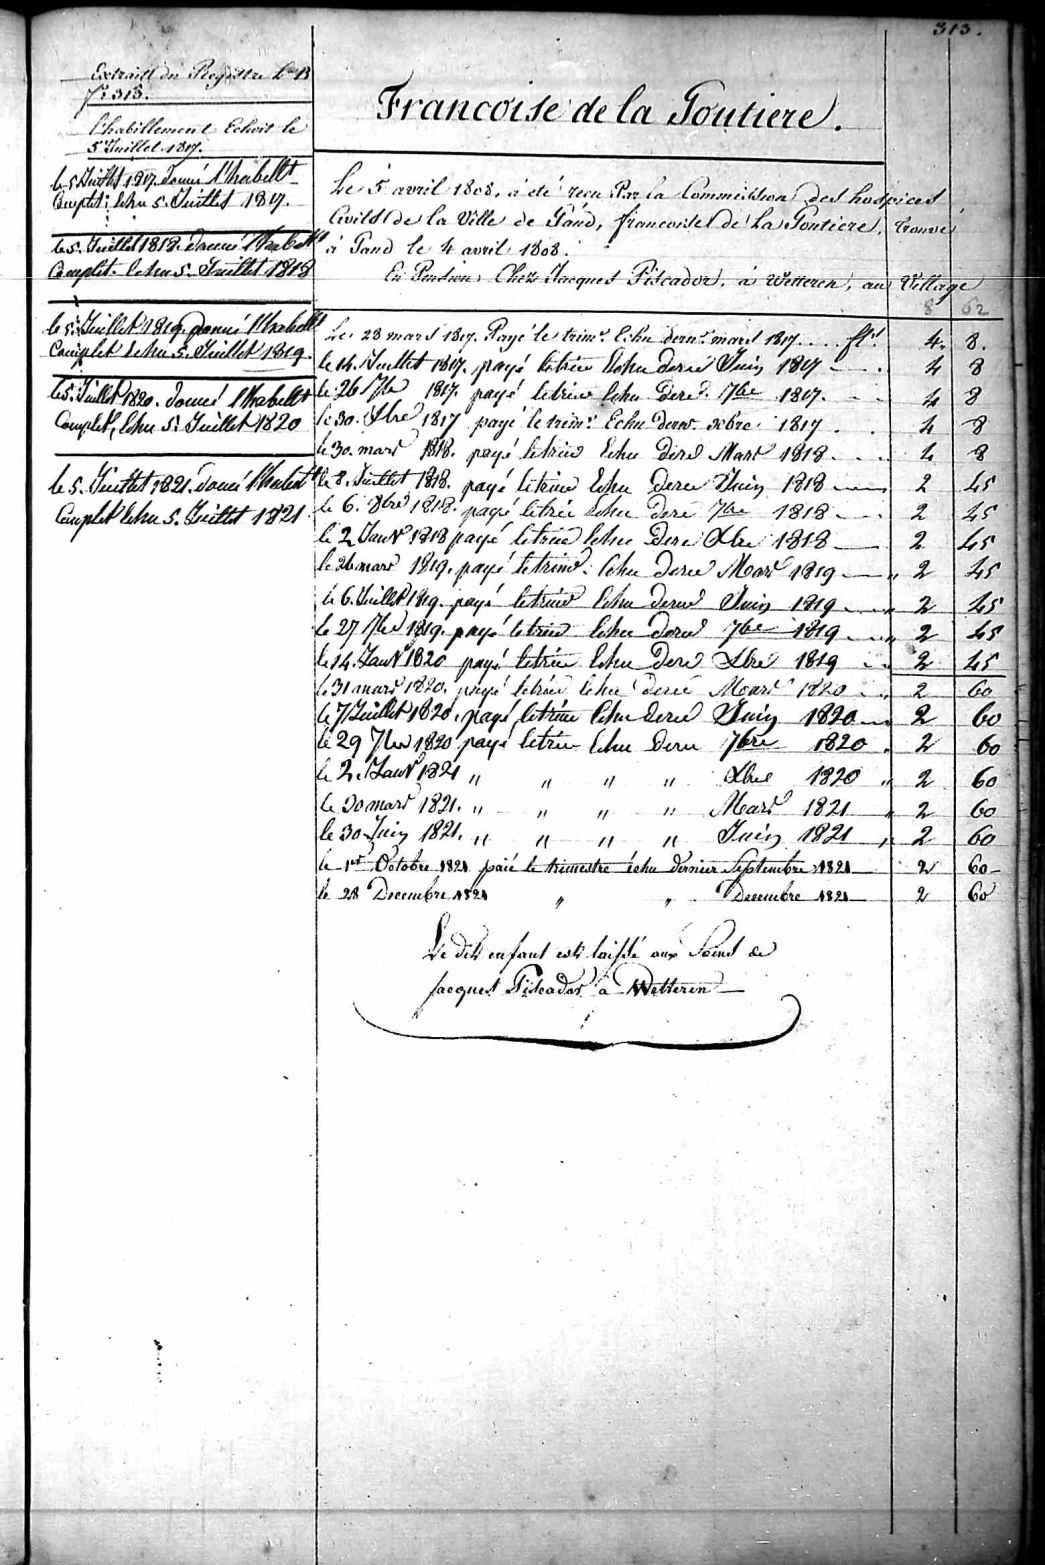 313.
Extrait du Registre L.ª B
f.º 313.
l'habillement Echoit le
5 Juillet 1817.
le 5 Juillet 1817. donné l'habell.t
Complet: Echu 5. Juillet 1817.
le 5. Juillet 1818. donné l'habellt
Complet. Echu 5. Juillet 1818
le 5. Juillet 1819. donné l'habellt
Complet Echu 5. Juillet 1819.
le 5. Juillet 1820. donné l'habellt
Complet, Echu 5. Juillet 1820
le 5. Juillet 1821. donné l'habellt
Complet Echu 5. Juillet 1821.
Francoise de la Goutiere.
Le 5 avril 1808. à été recu Par la Commission des hospices
Civils de la Ville de Gand, francoise de La Goutiere, trouvé
à Gand le 4 avril 1808.
En Pension Chez Jacques Piscador, à Wetteren, au Village
8 62
Le 28 mars 1817. Payé le trim.e Echu dern.r mars 1817. ... fl.s 4. 8.
le 14. Juillet 1817. payé le trim Echu dere Juin 1817 4 8
le 26 7bre 1817. payé le trim Echu Dere. 7bre 1817. 4 8
le 30. Xbre 1817 payé le trim: Echu dern. Xbre 1817 4 8
le 30. mars 1818. payé le trim Echu dere Mars 1818 4 8
le 8. Juillet 1818. payé le trim Echu dere Juin 1818 2 45
le 6. 8bre 1818. payé le trim Echu dere 7bre 1818 2 45
le 2 Janv 1818 payé le trim Echu Dere Xbre 1818 2 45
le 26 mars 1819. payé le trim. Echu dere Mars 1819 " 2 45
le 6. Juillet 1819. payé le trim Echu dere Juin 1819 " 2 45
le 27 7bre 1819. payé le trim Echu dere 7bre 1819 " 2 45
le 14. Janv 1820 payé le trim Echu Dere Xbre 1819 2 45
le 31 mars 1820. payé le trim Echu Dere Mars 1820 " 2 60
le 7 Juillet 1820. payé le trim Echu dere Juin 1820 2 60
le 29 7bre 1820 payé le trim Echu dere 7bre 1820 2 60
le 2. Janv 1821 " " " " Xbre 1820 " 2 60
le 30 mars 1821. " " " " Mars 1821 " 2 60
le 30 Juin 1821. " " " " Juin 1821 " 2 60
le 1er Octobre 1821 paié le trimestre échu dernier Septembre 1821 2 60
le 28 Decembre 1821 " " Decembre 1821 2 60
Le dit enfant est laissé aux Soins de
Jacques Piscador à Wetteren